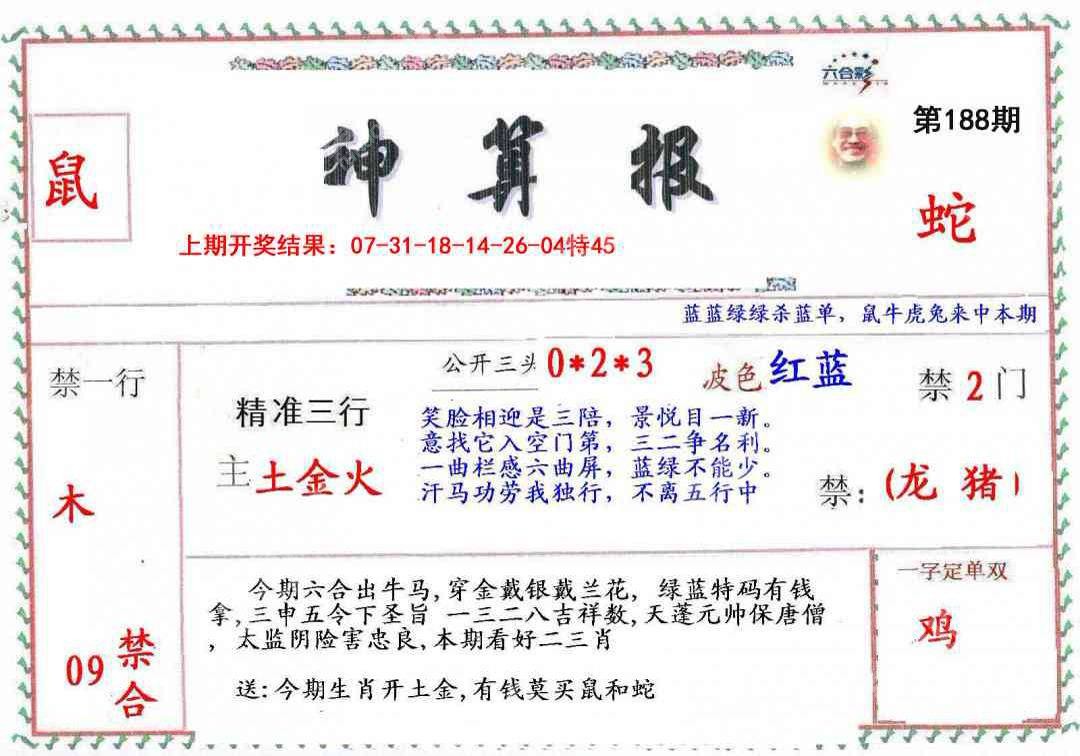 六合彩
第188期
鼠
神算报
蛇
上期开奖结果：07-31-18-14-26-04特45
蓝蓝绿绿杀蓝单，鼠牛虎兔来中本期
禁一行
公开三头 0*2*3
波色 红蓝
禁2门
精准三行
笑脸相迎是三陪，景悦目一新。
意找它入空门第，三二争名利。
一曲栏感六曲屏，蓝绿不能少。
汗马功劳我独行，不离五行中
主 土金火
禁：(龙 猪)
木
今期六合出牛马,穿金戴银戴兰花，绿蓝特码有钱
拿,三申五令下圣旨 一三二八吉祥数,天蓬元帅保唐僧
，太监阴险害忠良,本期看好二三肖
送:今期生肖开土金,有钱莫买鼠和蛇
一字定单双
鸡
09
禁合